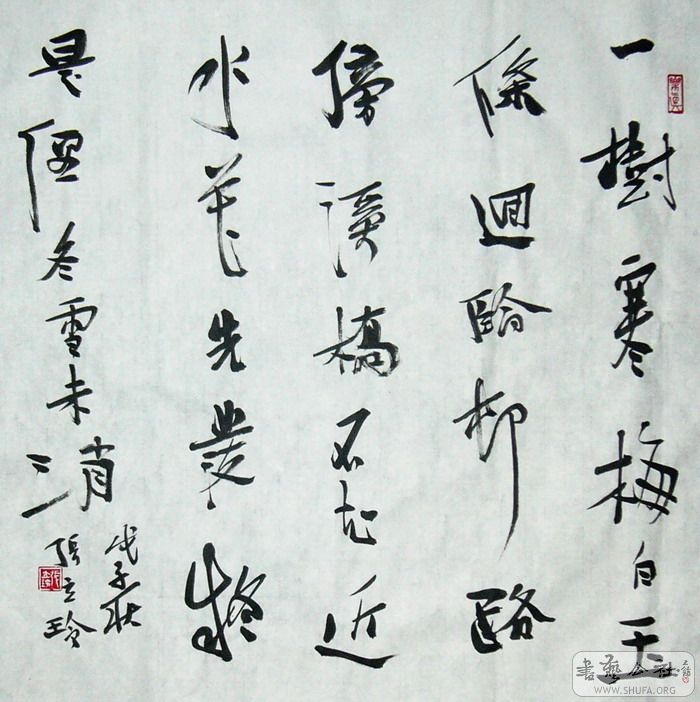 一樹寒梅白玉
條迴臨村路
傍溪橋不知近
水花先發疑
是經冬雪未消
戊子秋
張立玲
書藝公社
WWW.SHUFA.ORG